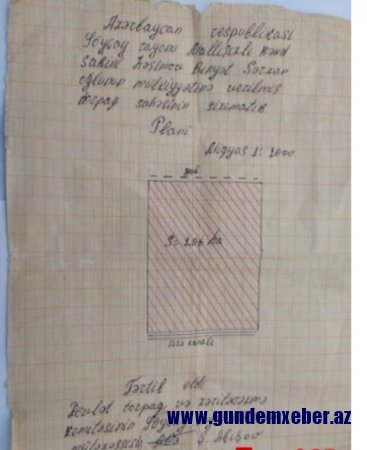 Azərbaycan respublikası
Göyçay rayonu Mallışıxlı kənd
sakini Həsimov Bünyat Sərxan
oğlunun mülkiyyətinə verilmiş
torpaq sahəsinin sxematik
Planı
Miqyas 1: 2000
yol
S= 2.06 ha
Tərtib etdi
Dövlət torpaq və xəritəçəkmə
komitəsinin
mütəxəssisi Ş. Abışov
www.gundemxeber.az